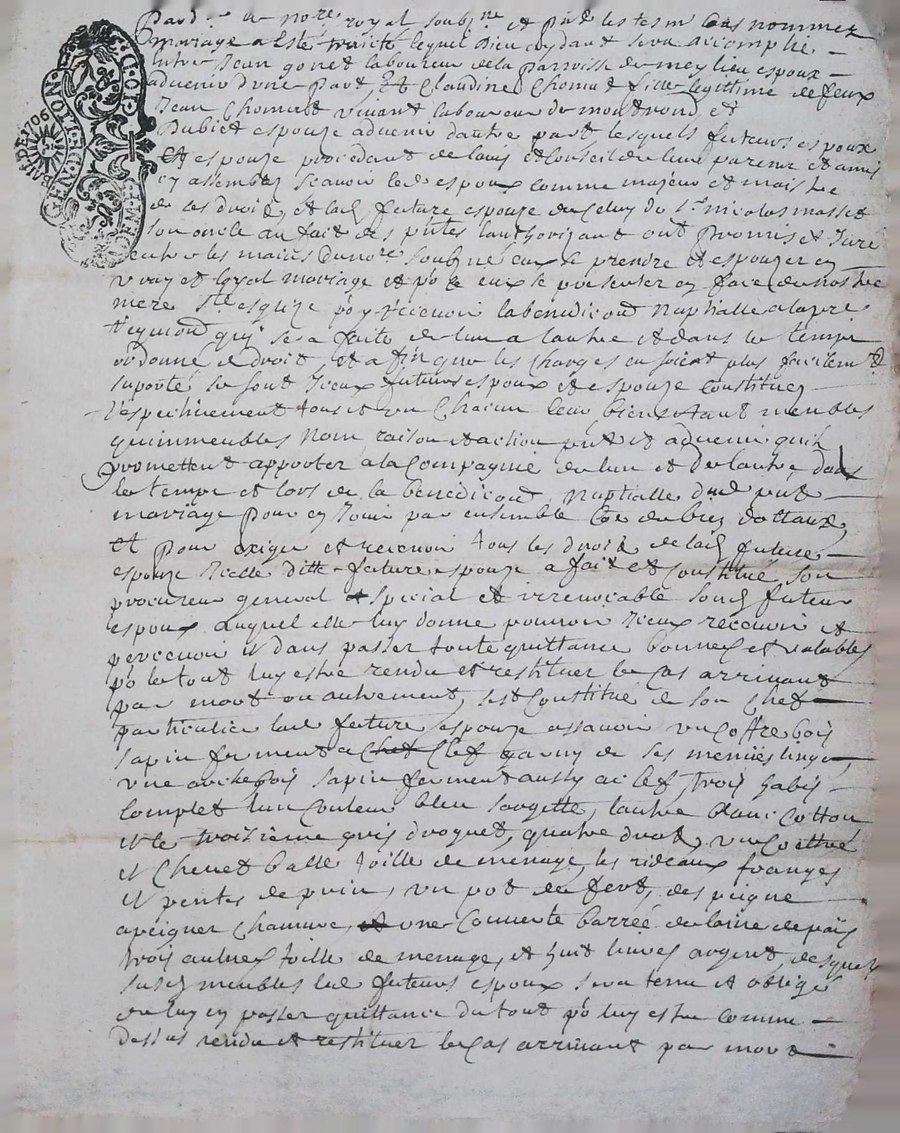 Pard. le no.re royal soub.ne et p.nt les tesm bas nommez
mariage a esté traicté lequel Dieu aydant sera accomplie
entre Jean gonet laboureur de la Parroisse de meylieu espoux
advenir d'une Part, Et Claudine Chomat fille legitime de feux
Jean Chomat vivant laboureur de montrond, et
Dubiet espouze advenir d'autre part lesquels futeurs espoux
et espouze procedant de lavis et conseil de leurs parens et amis
cy assemblez scavoir led espoux comme majeur et maistre
de ses droid, et lad future espouze de celuy de s.r nicolas masset
son oncle au fait des p.ntes lauthorizant ont Promis et Juré
entre les mains du no.re soub.ne eux se prendre et espouzer en
vray et loyal mariage et po.r ce eux se presenter en face de nostre
mere s.te esglize po.r y recevoir la benediction nuptialle a la pre
requisition qui sera faite de lun a lautre et dans le temps
ordonné de droit, et afin que les charges en soient plus facilem.t
suporté se sont Iceux futurs espoux et espouze constituez
respectivement tous et un chacun leurs biens tant meubles
qu'immeubles nom, raison et action p.nt et advenir quils
promettent apporter a la compagnie de lun et de lautre dans
le temps et lors de la benediction nuptialle dud p.nt
mariage Pour en Jouir par ensemble co.e de biens dottaux,
et Pour exiger et recevoir tous les droid de lad future
espouze Icelle ditte future espouze a fait et constitué son
procureur general special et irrevocable sond futeur
espoux auquel elle luy donne pouvoir Iceux recevoir et
percevoir et dans passer toute quittance bonnes et valables
po.r le tout luy estre rendu et restituer le cas arrivant
par mort ou autrement, sest constitué de son chef
particulier lad future espouze assavoir un coffre bois
sapin fermant a clef garny de ses menües linge,
une arche bois sapin fermant aussy a clef, trois habis
complet lun couleur bleu sargette, lautre blanc cotton
et le troizieme gris droguet, quatre drat, un coettre
et chevet balle toille de menage, les rideaux franges
et pentes de , un pot de fert, des peigne
a peigner chanvre, une couverte barrée de laine de païs
trois aulnes toille de menage, et huit livres argent, desquels
susd meubles led futeurs espoux sera tenu et obligé
en luy en passer quittance du tout po.r luy estre comme
dessus rendu et restituer le cas arrivant par mort